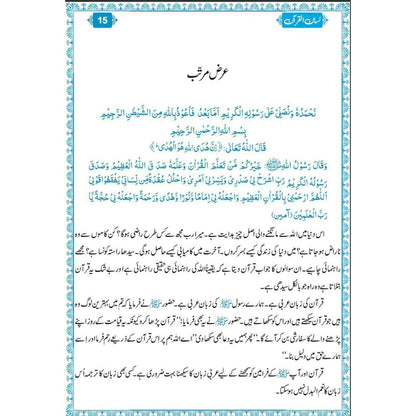 لسان القرآن
15
عرض مرتب
نَحْمَدُهٗ وَنُصَلِّیْ عَلٰی رَسُوْلِهِ الْکَرِیْمِ اَمَّا بَعْدُ فَاَعُوْذُ بِاللّٰهِ مِنَ الشَّیْطٰنِ الرَّجِیْمِ
بِسْمِ اللّٰهِ الرَّحْمٰنِ الرَّحِیْمِ
قَالَ اللّٰهُ تَعَالٰی: ﴿اِنَّ هُدَی اللّٰهِ هُوَ الْهُدٰی ط﴾
وَقَالَ رَسُوْلُ اللّٰهِ ﷺ خَیْرُکُمْ مَّنْ تَعَلَّمَ الْقُرْاٰنَ وَعَلَّمَهٗ صَدَقَ اللّٰهُ الْعَظِیْمُ وَصَدَقَ
رَسُوْلُهُ الْکَرِیْمُ رَبِّ اشْرَحْ لِیْ صَدْرِیْ وَیَسِّرْلِیْ اَمْرِیْ وَاحْلُلْ عُقْدَةً مِنْ لِسَانِیْ یَفْقَهُوْا قَوْلِیْ
اَللّٰهُمَّ ارْحَمْنِیْ بِالْقُرْاٰنِ الْعَظِیْمِ وَاجْعَلْهُ لِیْ اِمَامًا وَّنُوْرًا وَّهُدًی وَّرَحْمَةً وَاجْعَلْهُ لِیْ حُجَّةً یَّا
رَبَّ الْعٰلَمِیْنَ (آمین)
اس دنیا میں اللہ سے مانگنے والی اصل چیز ہدایت ہے۔ میرا رب مجھ سے کس طرح راضی ہوگا؟ کن کاموں سے وہ
ناراض ہوجاتا ہے؟ میں دنیا کی زندگی کیسے بسر کروں۔ آخرت میں کامیابی کیسے حاصل ہوگی۔ سیدھا راستہ کونسا ہے؟
راہنمائی چاہیے۔ ان سوالوں کا جواب قرآن دیتا ہے کہ یقیناً اللہ کی راہنمائی ہی حقیقی راہنمائی ہے اور بے شک یہ قرآن
بتاتا ہے وہ راہ جو بالکل سیدھی ہے۔
قرآن کی زبان عربی ہے۔ ہمارے رسول ﷺ کی زبان عربی ہے۔ حضور ﷺ نے فرمایا کہ تم میں بہترین لوگ وہ
ہیں جو قرآن سیکھتے ہیں اور اس کو سکھاتے ہیں۔ حضور ﷺ نے یہ بھی فرمایا: ’’قرآن پڑھا کرو کیونکہ یہ قیامت کے روز اپنے
پڑھنے والے کا سفارشی بن کر آئے گا۔‘‘ پھر ہمیں یہ دعا بھی سکھا دی ’’اے اللہ ہم پر اس قرآن کے ذریعے رحم فرما اور اسے
ہمارے حق میں دلیل بنا۔‘‘
قرآن اور آپ ﷺ کے فرامین کو سمجھنے کے لیے عربی زبان کا سیکھنا بہت ضروری ہے۔ کسی بھی زبان کا ترجمہ اُس
زبان کا نعم البدل نہیں ہوسکتا۔